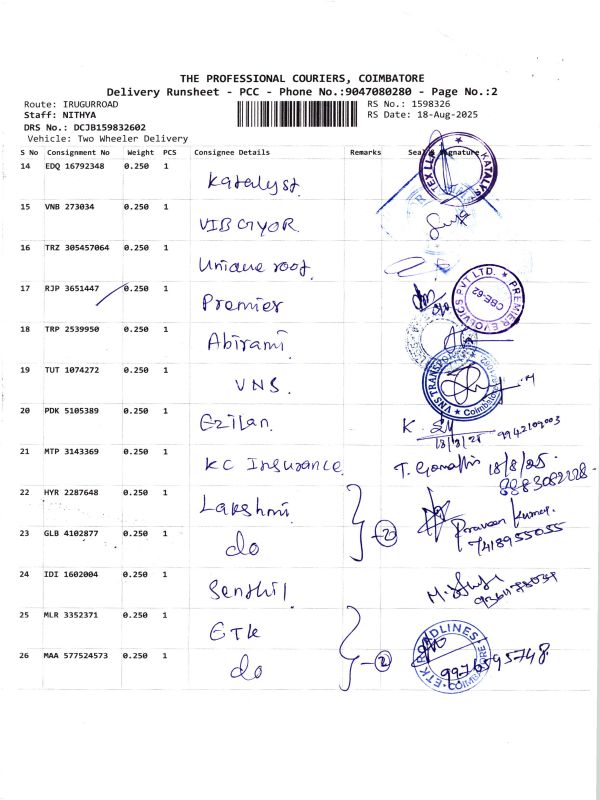 THE PROFESSIONAL COURIERS, COIMBATORE
Delivery Runsheet - PCC - Phone No.:9047080280 - Page No.:2
Route: IRUGURROAD RS No.: 1598326
Staff: NITHYA RS Date: 18-Aug-2025
DRS No.: DCJB159832602
Vehicle: Two Wheeler Delivery
S No Consignment No Weight PCS Consignee Details Remarks Seal & Signature
14 EDQ 16792348 0.250 1 Katalyst.
15 VNB 273034 0.250 1
16 TRZ 305457064 0.250 1 Unique roof.
17 RJP 3651447 0.250 1 Premier
PREMIER EVOLVICS PVT LTD. CBE-62
18 TRP 2539950 0.250 1 Abirami
19 TUT 1074272 0.250 1 VNS.
VNS TRANSPORT Coimbatore
20 PDK 5105389 0.250 1 Ezilan. K.
18/8/25
21 MTP 3143369 0.250 1 KC Insurance. 18/8/25.
22 HYR 2287648 0.250 1 Lakshmi
23 GLB 4102877 0.250 1 do 2 Praveen Kumar.
7418955055
24 IDI 1602004 0.250 1 Senthil.
25 MLR 3352371 0.250 1 ETK
26 MAA 577524573 0.250 1 do 2 9976595748
ETK ROADLINES COIMBATORE